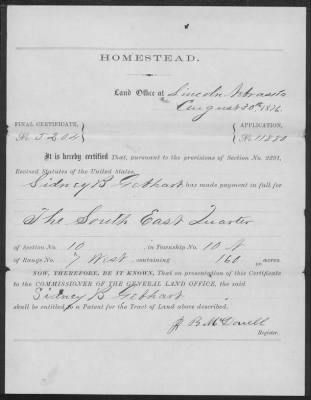 HOMESTEAD.
Land Office at Lincoln Nebraska
August 30th 1876.
FINAL CERTIFICATE, APPLICATION,
No. 5204 No. 11880
It is hereby certified That, pursuant to the provisions of Section No. 2291,
Revised Statutes of the United States,
Sidney B Gebhart has made payment in full for
The South East Quarter
of Section No. 10 , in Township No. 10 N
of Range No. 7 West , containing 160 acres.
NOW, THEREFORE, BE IT KNOWN, That on presentation of this Certificate
to the COMMISSIONER OF THE GENERAL LAND OFFICE, the said
Sidney B Gebhart
shall be entitled to a Patent for the Tract of Land above described.
J B McDowell
Register.